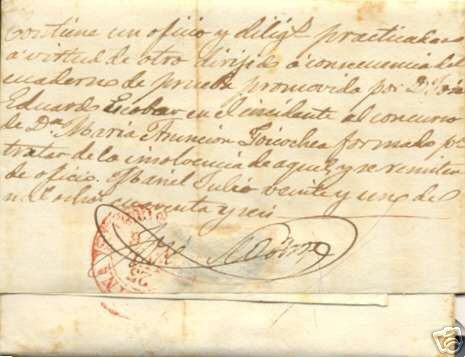 contiene un oficio y diligs practicadas
a virtud de otro dirijido a consecuencia del
cuaderno de prueba promovida por D. José
Eduardo Escobar en el incidente al concurso
de Da Maria Asuncion Goicochea formado pa
tratar de la insolvencia de aquel y se remiten
de oficio. Mariel Julio veinte y uno de
mil ochos cincuenta y seis
ebY